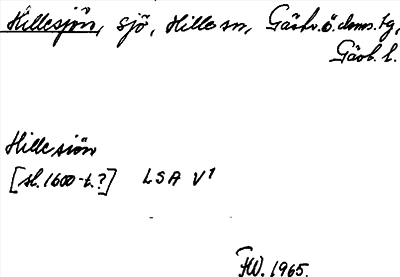 Hillesjön, sjö, Hille sn, Gästr. ö. doms. tg,
Gävl. l.
Hillesiön
[sl. 1600-t.?] LSA V1
FW. 1965.